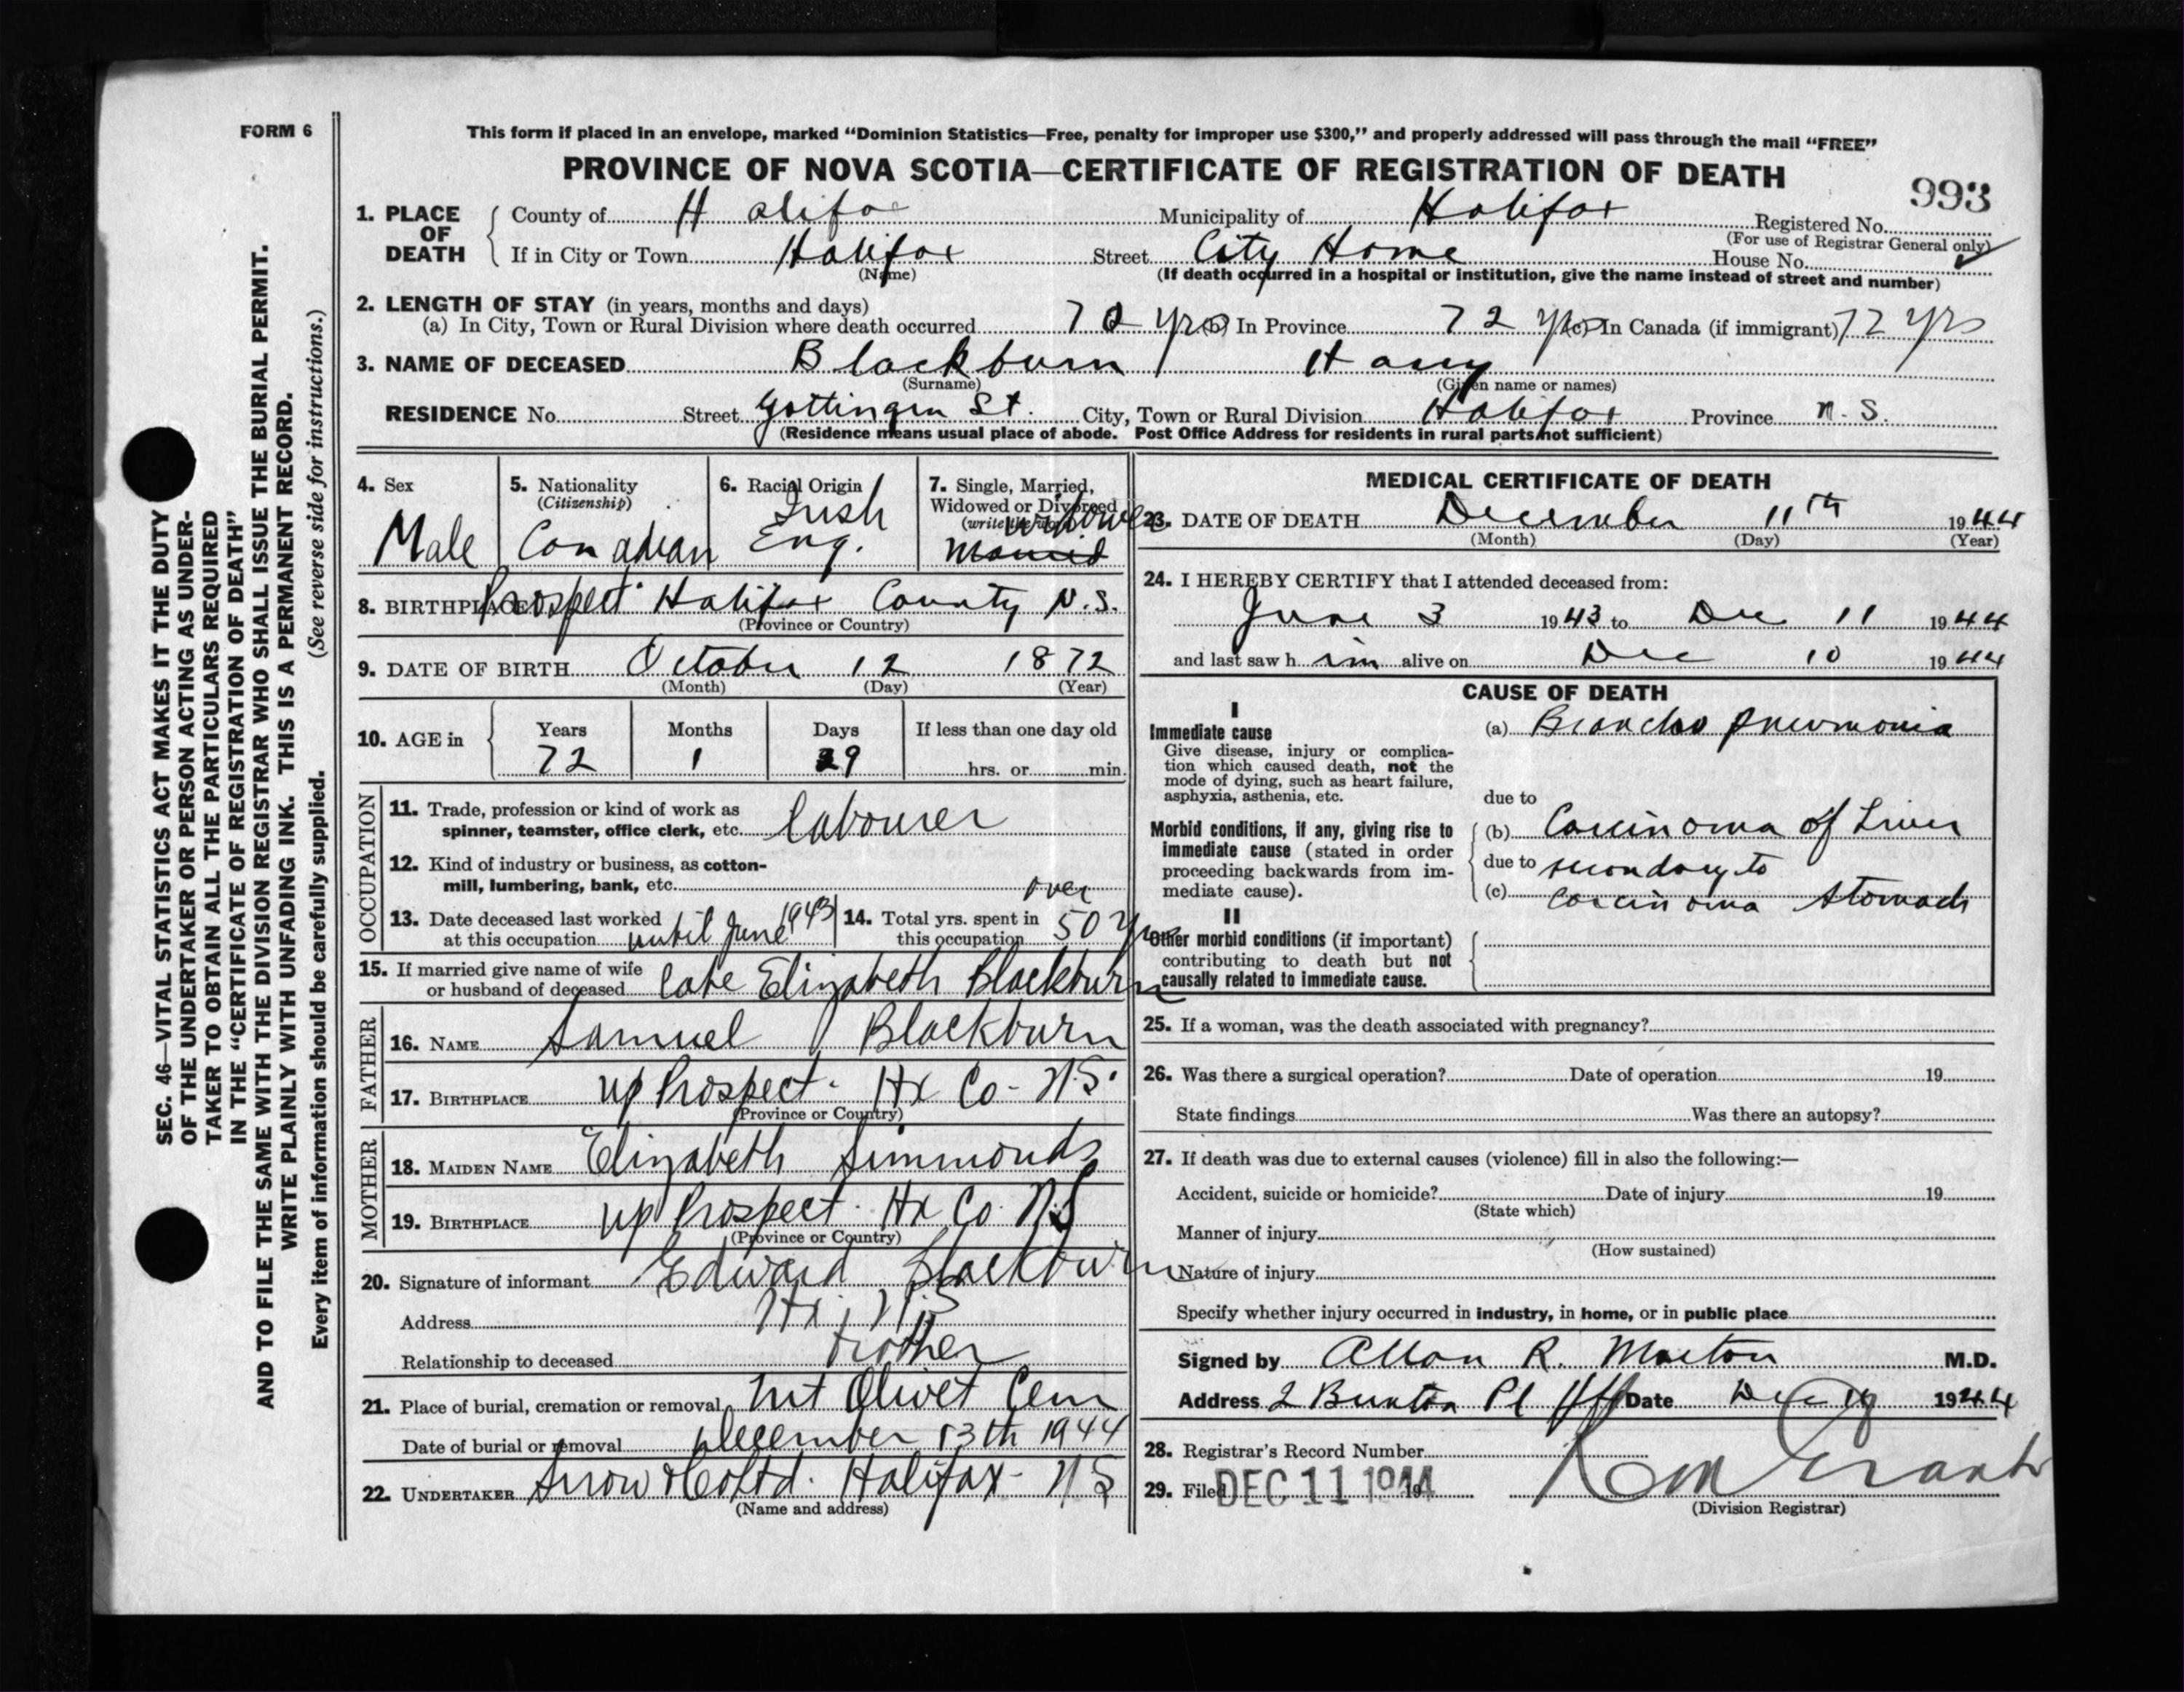 FORM 6
This form if placed in an envelope, marked “Dominion Statistics—Free, penalty for improper use $300,” and properly addressed will pass through the mail “FREE”
PROVINCE OF NOVA SCOTIA—CERTIFICATE OF REGISTRATION OF DEATH
993
1. PLACE OF DEATH County of Halifa Municipality of Halifax Registered No.
(For use of Registrar General only)
If in City or Town Halifax Street City Home House No.
(Name) (If death occurred in a hospital or institution, give the name instead of street and number)
2. LENGTH OF STAY (in years, months and days)
(a) In City, Town or Rural Division where death occurred 72 yrs (b) In Province 72 yrs (c) In Canada (if immigrant) 72 yrs
3. NAME OF DECEASED Blackburn Harry
(Surname) (Given name or names)
RESIDENCE No. Street Gottingen St. City, Town or Rural Division Halifax Province N.S.
(Residence means usual place of abode. Post Office Address for residents in rural parts not sufficient)
4. Sex Male
5. Nationality (Citizenship) Canadian
6. Racial Origin Irish Eng.
7. Single, Married, Widowed or Divorced (write the word) widower Married
8. BIRTHPLACE Prospect Halifax County N.S.
(Province or Country)
9. DATE OF BIRTH October 12 1872
(Month) (Day) (Year)
10. AGE in Years 72 Months 1 Days 29 If less than one day old hrs. or min.
OCCUPATION
11. Trade, profession or kind of work as
spinner, teamster, office clerk, etc. labourer
12. Kind of industry or business, as cotton-
mill, lumbering, bank, etc.
13. Date deceased last worked
at this occupation until June 1943
14. Total yrs. spent in
this occupation over 50 yrs
15. If married give name of wife
or husband of deceased late Elizabeth Blackburn
FATHER
16. NAME Samuel Blackburn
17. BIRTHPLACE up Prospect - Hx Co - N.S.
(Province or Country)
MOTHER
18. MAIDEN NAME Elizabeth Simmonds
19. BIRTHPLACE up Prospect - Hx Co. N.S
(Province or Country)
20. Signature of informant Edward Blackburn
Address Hx, N.S
Relationship to deceased brother
21. Place of burial, cremation or removal Mt Olivet Cem
Date of burial or removal December 13th 1944
22. UNDERTAKER Snow & Co Ltd. Halifax - N S
(Name and address)
MEDICAL CERTIFICATE OF DEATH
23. DATE OF DEATH December 11th 1944
(Month) (Day) (Year)
24. I HEREBY CERTIFY that I attended deceased from:
June 3 1943 to Dec 11 1944
and last saw him alive on Dec 10 1944
CAUSE OF DEATH
I
Immediate cause
Give disease, injury or complica-
tion which caused death, not the
mode of dying, such as heart failure,
asphyxia, asthenia, etc.
(a) Broncho pneumonia
due to
Morbid conditions, if any, giving rise to
immediate cause (stated in order
proceeding backwards from im-
mediate cause).
(b) Carcinoma of Liver
due to secondary to
(c) carcinoma Stomach
II
Other morbid conditions (if important)
contributing to death but not
causally related to immediate cause.
25. If a woman, was the death associated with pregnancy?
26. Was there a surgical operation? Date of operation 19
State findings Was there an autopsy?
27. If death was due to external causes (violence) fill in also the following:—
Accident, suicide or homicide? Date of injury 19
(State which)
Manner of injury
(How sustained)
Nature of injury
Specify whether injury occurred in industry, in home, or in public place
Signed by Allan R. Morton M.D.
Address 2 Buxton Pl Hfx Date Dec 1944
28. Registrar's Record Number
29. Filed DEC 11 1944 19
(Division Registrar)
SEC. 46—VITAL STATISTICS ACT MAKES IT THE DUTY
OF THE UNDERTAKER OR PERSON ACTING AS UNDER-
TAKER TO OBTAIN ALL THE PARTICULARS REQUIRED
IN THE “CERTIFICATE OF REGISTRATION OF DEATH”
AND TO FILE THE SAME WITH THE DIVISION REGISTRAR WHO SHALL ISSUE THE BURIAL PERMIT.
WRITE PLAINLY WITH UNFADING INK. THIS IS A PERMANENT RECORD.
Every item of information should be carefully supplied. (See reverse side for instructions.)